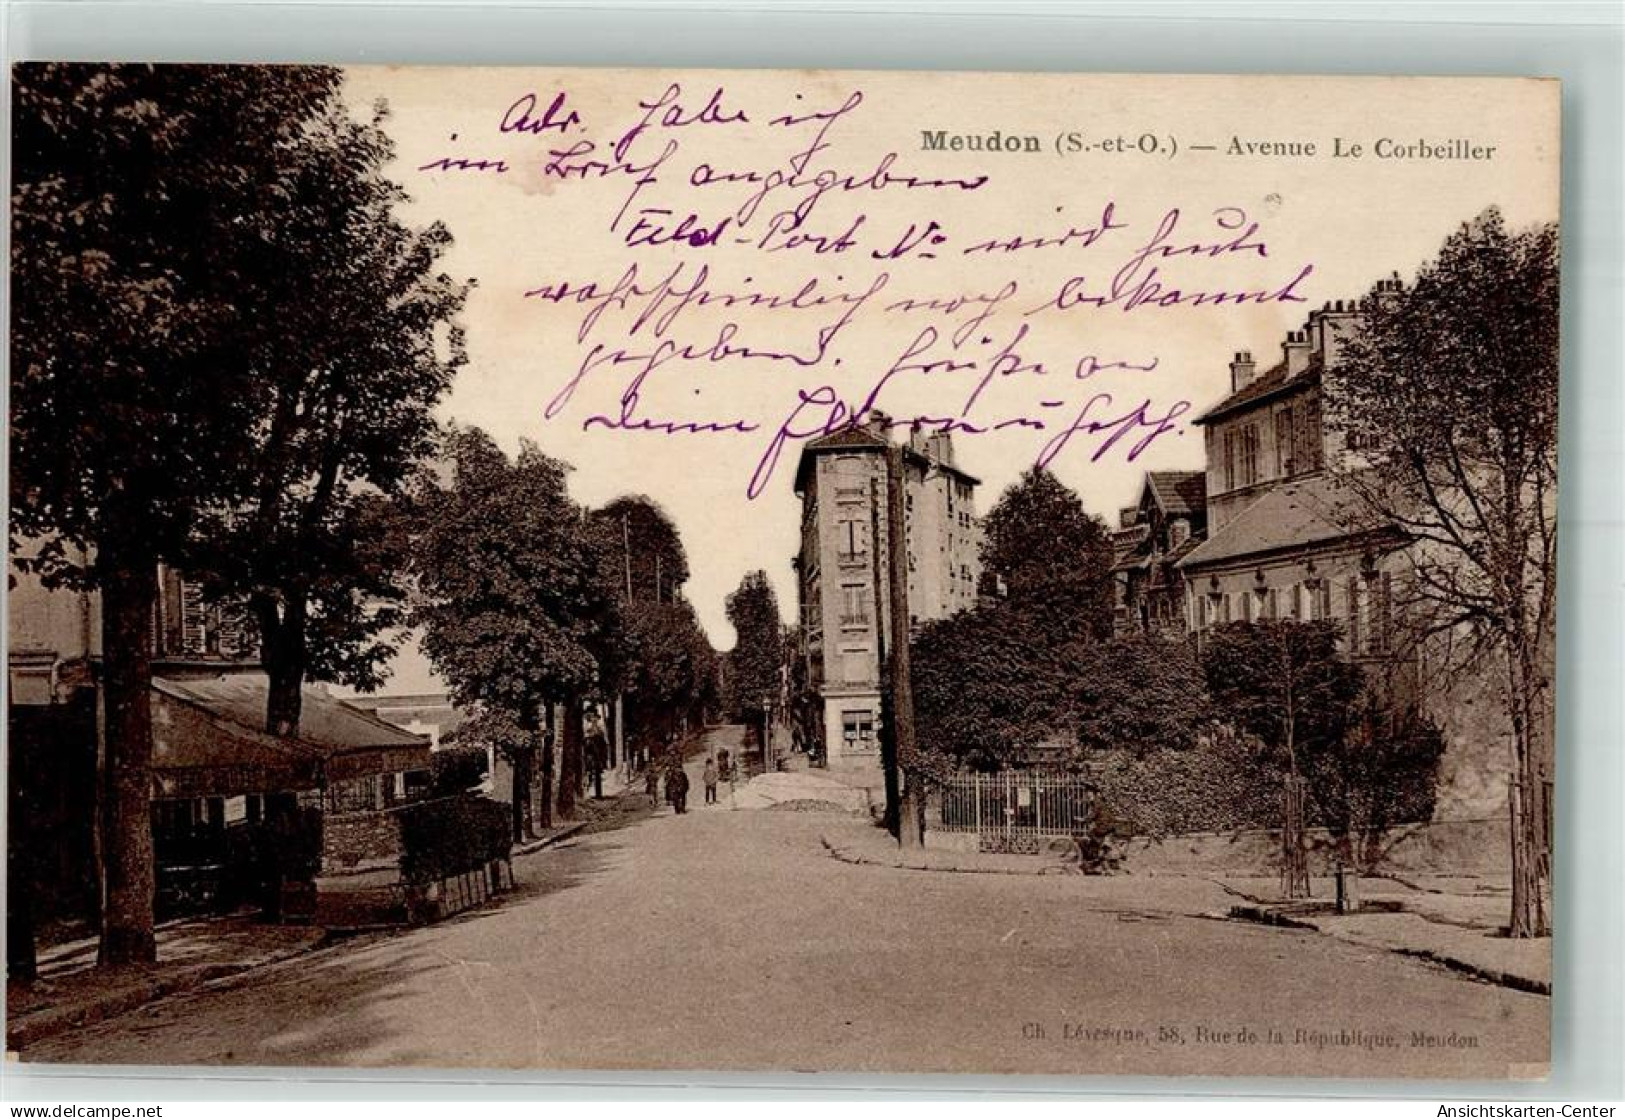 Meudon (S.-et-O.) — Avenue Le Corbeiller
Adr. habe ich
im Brief angegeben
Feld-Post No wird heute
wahrscheinlich noch bekannt
gegeben. Grüße an
Deine Eltern u Gesch.
Ch. Lévesque, 58, Rue de la République, Meudon
www.delcampe.net
Ansichtskarten-Center